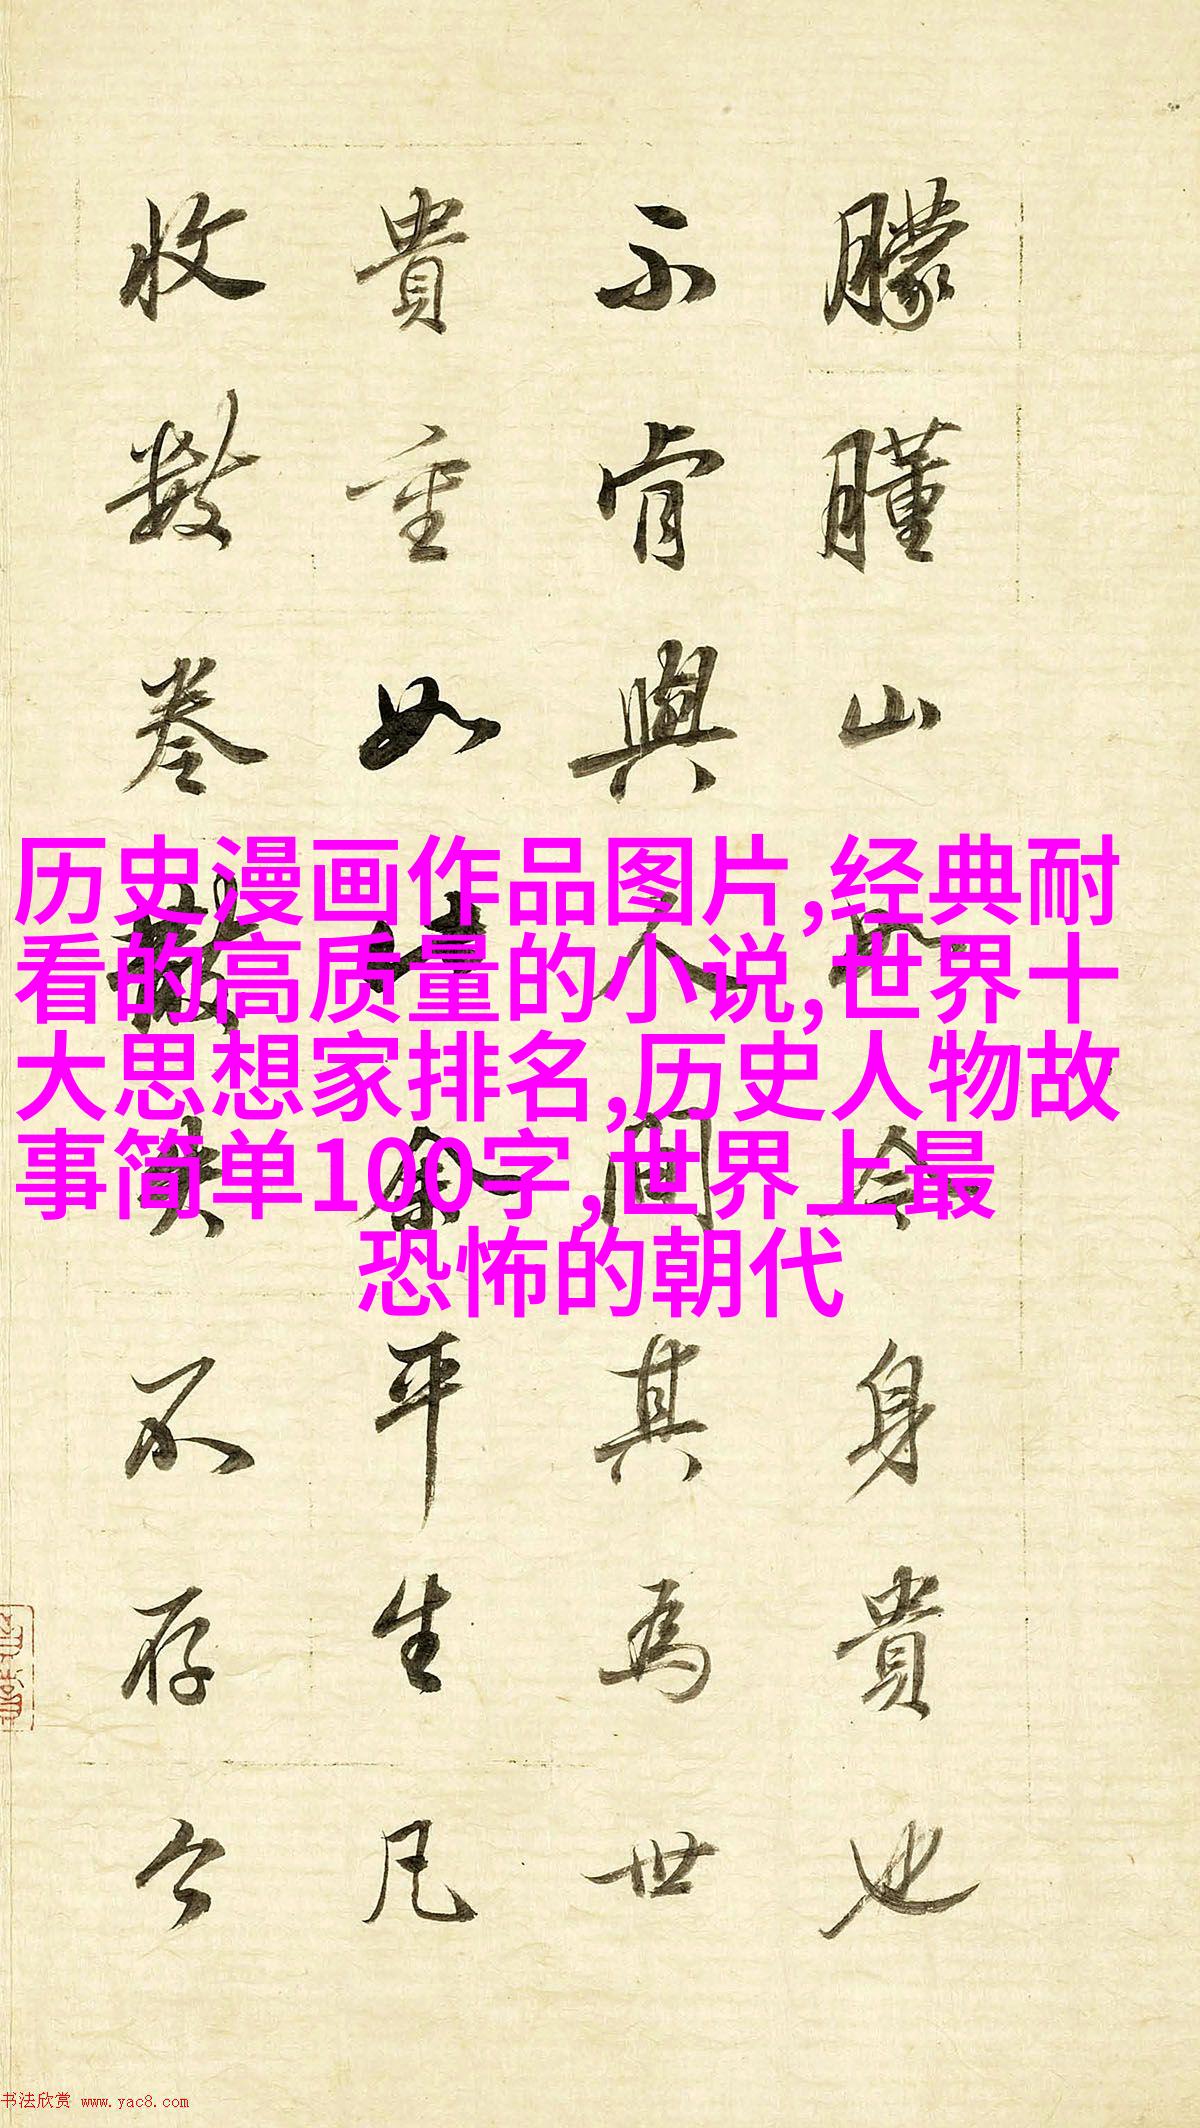 朦朣山身貴也
不肯與人間其為世
貴重如此余平生凡
收數卷散失不存今
历史漫画作品图片,经典耐
看的高质量的小说,世界十
大思想家排名,历史人物故
事简单100字,世界上最
恐怖的朝代
书法欣赏 www.yac8.com